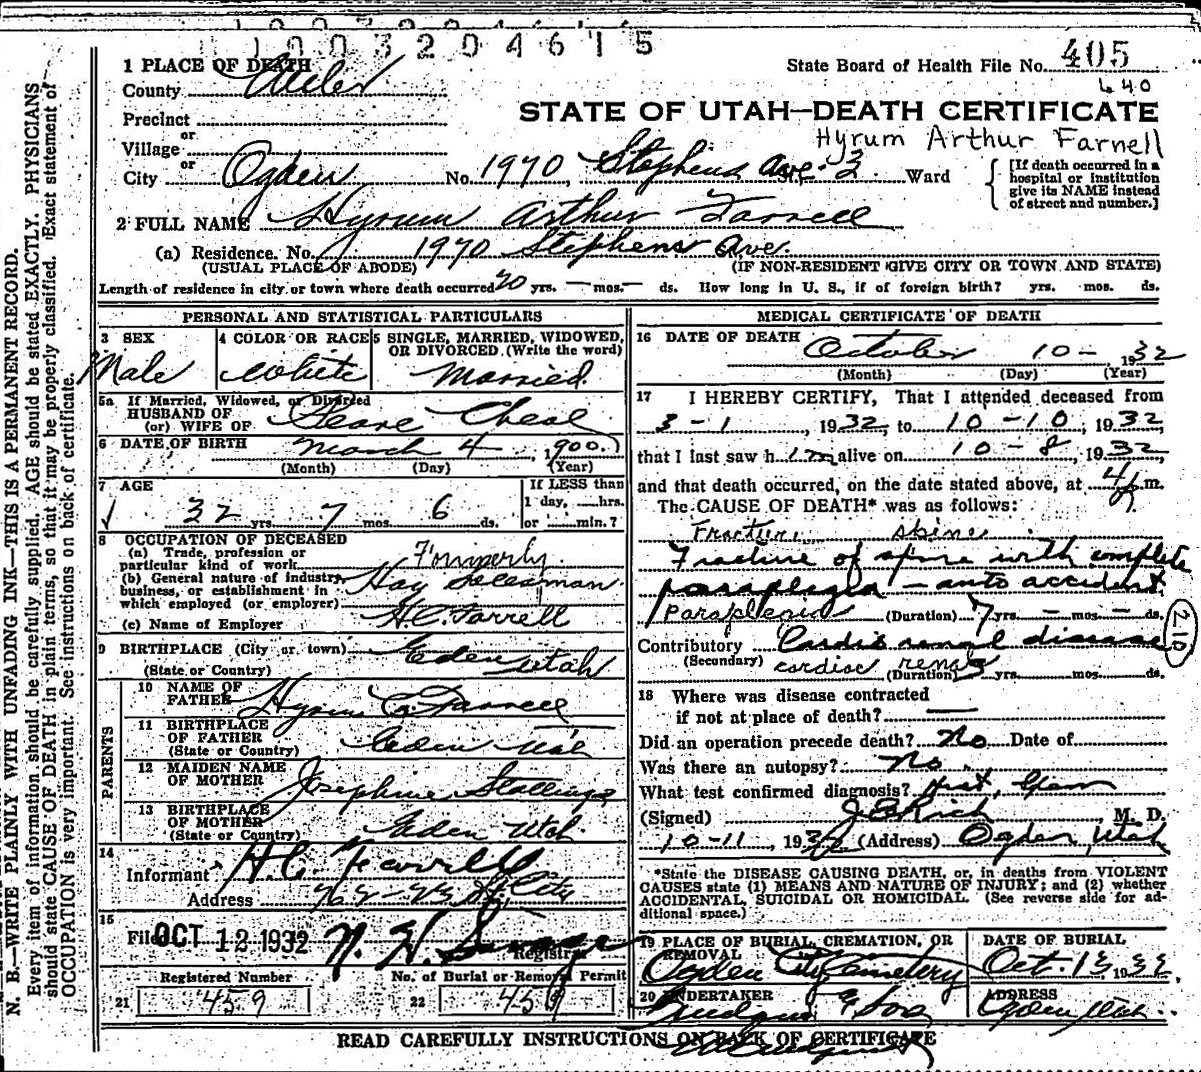 1003204615
1 PLACE OF DEATH
State Board of Health File No. 405
County
640
STATE OF UTAH—DEATH CERTIFICATE
Precinct
or
Hyrum Arthur Farnell
Village
or
City Ogden No. 1970 Stephens Ave. St. 3 Ward
[If death occurred in a
hospital or institution
give its NAME instead
of street and number.]
2 FULL NAME Hyrum Arthur Farrell
(a) Residence. No. 1970 Stephens Ave.
(USUAL PLACE OF ABODE) (IF NON-RESIDENT GIVE CITY OR TOWN AND STATE)
Length of residence in city or town where death occurred 20 yrs. — mos. — ds. How long in U. S., if of foreign birth? yrs. mos. ds.
PERSONAL AND STATISTICAL PARTICULARS
3 SEX
Male
4 COLOR OR RACE
White
5 SINGLE, MARRIED, WIDOWED,
OR DIVORCED. (Write the word)
Married
5a If Married, Widowed, or Divorced
HUSBAND OF
(or) WIFE OF
6 DATE OF BIRTH March 4, 1900
(Month) (Day) (Year)
7 AGE
32 yrs. 7 mos. 6 ds.
If LESS than
1 day, hrs.
or min.?
8 OCCUPATION OF DECEASED
(a) Trade, profession or
particular kind of work Formerly
(b) General nature of industry,
business, or establishment in
which employed (or employer)
Hay Salesman
(c) Name of Employer H.C. Farrell
9 BIRTHPLACE (City or town) Eden
(State or Country) Utah
PARENTS
10 NAME OF
FATHER Hyrum C. Farrell
11 BIRTHPLACE
OF FATHER
(State or Country) Eden Utah
12 MAIDEN NAME
OF MOTHER Josephine Stallings
13 BIRTHPLACE
OF MOTHER
(State or Country) Eden Utah
14
Informant H.C. Farrell
Address City
15
Filed OCT 12 1932
Registrar
Registered Number
21 459
No. of Burial or Removal Permit
22 459
MEDICAL CERTIFICATE OF DEATH
16 DATE OF DEATH October 10- 1932
(Month) (Day) (Year)
17 I HEREBY CERTIFY, That I attended deceased from
3-1, 1932, to 10-10, 1932,
that I last saw him alive on 10-8, 1932,
and that death occurred, on the date stated above, at 4 P m.
The CAUSE OF DEATH* was as follows:
Fracture spine
Fracture of spine with complete
paraplegia - auto accident
Paraplegia (Duration) 7 yrs. — mos. — ds.
210
Contributory Cardio renal disease
(Secondary) cardiac renal (Duration) 3 yrs. mos. ds.
18 Where was disease contracted
if not at place of death? —
Did an operation precede death? No Date of
Was there an autopsy? No
What test confirmed diagnosis? Hist,
(Signed) Rich, M. D.
10-11, 1932 (Address) Ogden, Utah
*State the DISEASE CAUSING DEATH, or, in deaths from VIOLENT
CAUSES state (1) MEANS AND NATURE OF INJURY; and (2) whether
ACCIDENTAL, SUICIDAL OR HOMICIDAL. (See reverse side for ad-
ditional space.)
19 PLACE OF BURIAL, CREMATION, OR
REMOVAL
Ogden City Cemetery
DATE OF BURIAL
Oct. 1932
20 UNDERTAKER
ADDRESS
Ogden Utah
READ CAREFULLY INSTRUCTIONS ON BACK OF CERTIFICATE
N. B.—WRITE PLAINLY WITH UNFADING INK—THIS IS A PERMANENT RECORD.
Every item of information should be carefully supplied. AGE should be stated EXACTLY. PHYSICIANS
should state CAUSE OF DEATH in plain terms, so that it may be properly classified. Exact statement of
OCCUPATION is very important. See instructions on back of certificate.